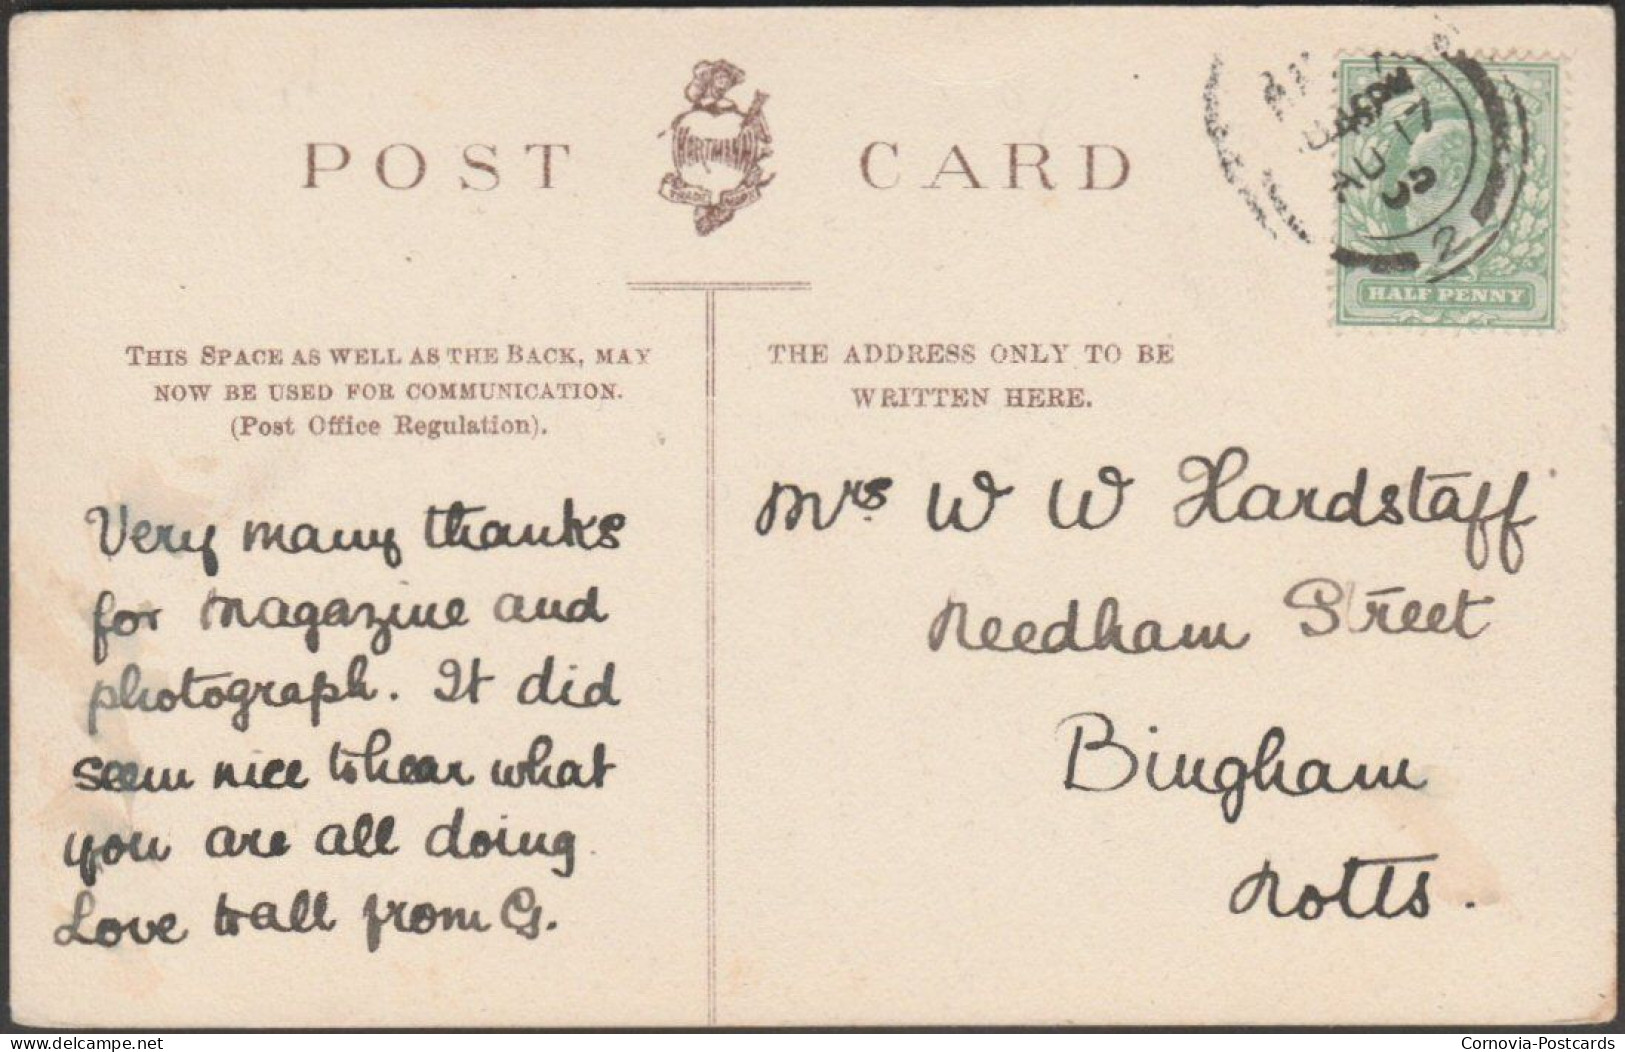 POST CARD
HARTMANN
TRADE MARK
AU 17
2
HALF PENNY
THIS SPACE AS WELL AS THE BACK, MAY
NOW BE USED FOR COMMUNICATION.
(Post Office Regulation).
THE ADDRESS ONLY TO BE
WRITTEN HERE.
Very many thanks
for magazine and
photograph. It did
seem nice to hear what
you are all doing.
Love to all from G.
Mrs. W W Hardstaff
Needham Street
Bingham
Notts.
delcampe.net
Cornovia-Postcards